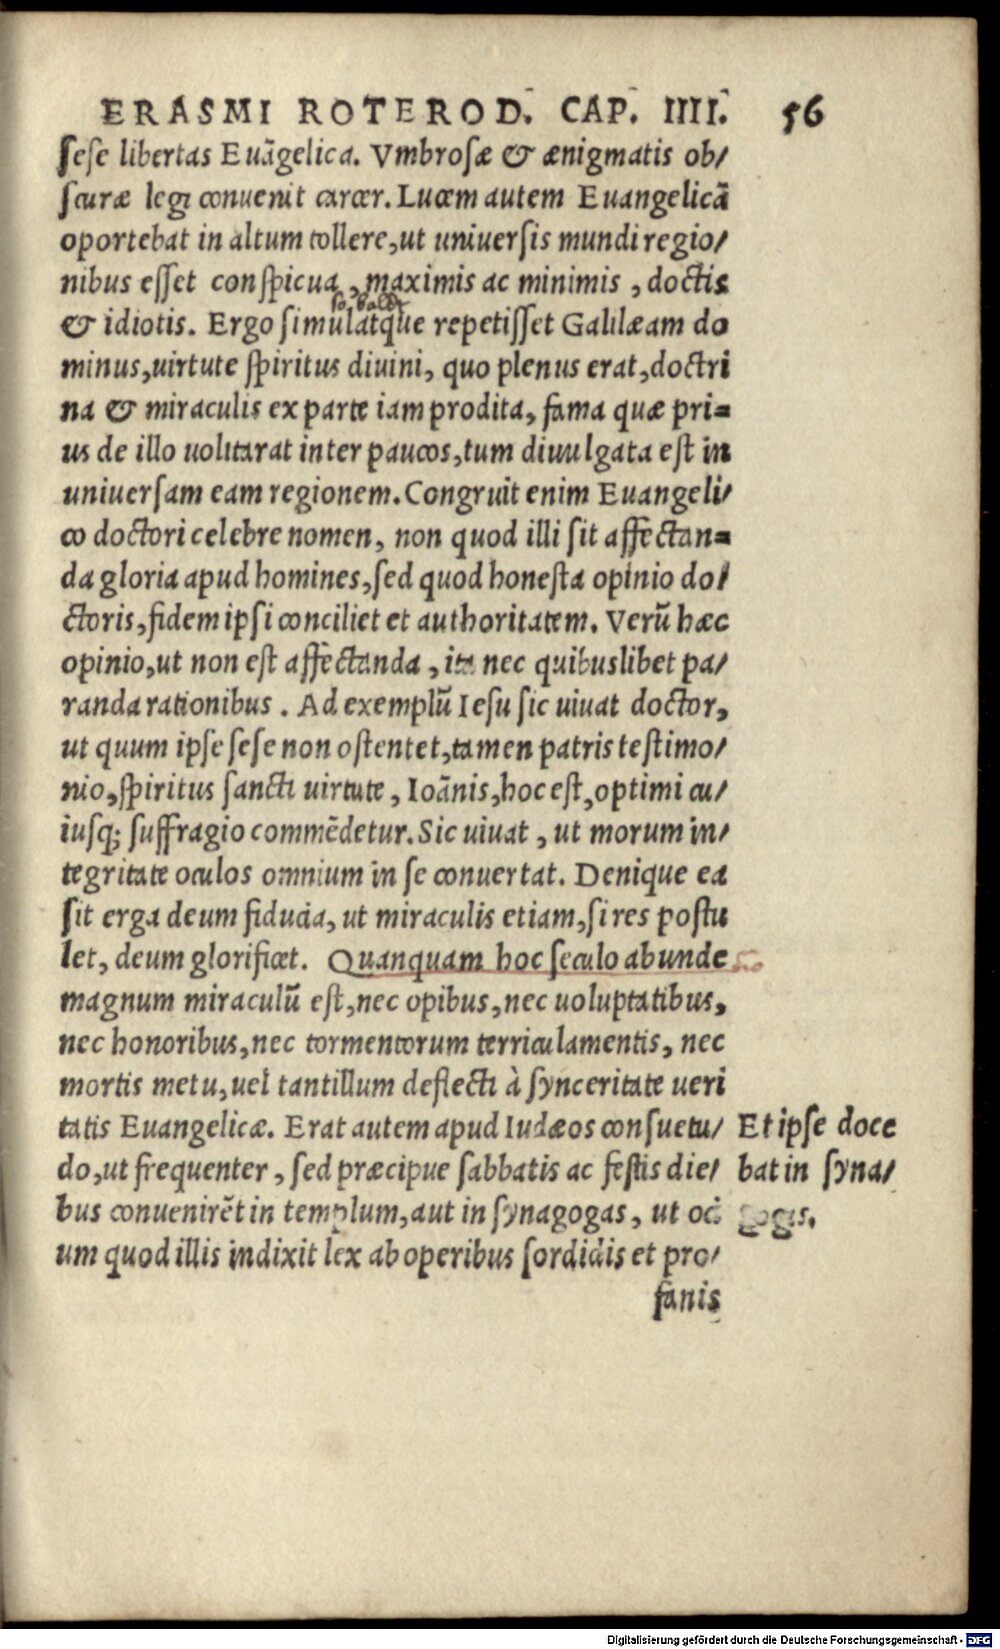 ERASMI ROTEROD. CAP. IIII. 56
sese libertas Euãgelica. Vmbrosæ & ænigmatis ob/
scuræ legi conuenit carcer. Lucem autem Euangelicã
oportebat in altum tollere, ut uniuersis mundi regio/
nibus esset conspicua, maximis ac minimis, doctis
so baldt
& idiotis. Ergo simulatque repetisset Galilæam do
minus, uirtute spiritus diuini, quo plenus erat, doctri
na & miraculis ex parte iam prodita, fama quæ pri=
us de illo uolitarat inter paucos, tum diuulgata est in
uniuersam eam regionem. Congruit enim Euangeli/
co doctori celebre nomen, non quod illi sit affectan=
da gloria apud homines, sed quod honesta opinio do/
ctoris, fidem ipsi conciliet et authoritatem. Verũ hæc
opinio, ut non est affectanda, ita nec quibuslibet pa/
randa rationibus. Ad exemplũ Iesu sic uiuat doctor,
ut quum ipse sese non ostentet, tamen patris testimo/
nio, spiritus sancti uirtute, Ioãnis, hoc est, optimi cu/
iusq; suffragio commẽdetur. Sic uiuat, ut morum in/
tegritate oculos omnium in se conuertat. Denique ea
sit erga deum fiducia, ut miraculis etiam, si res postu
let, deum glorificet. Quanquam hoc seculo abunde
magnum miraculũ est, nec opibus, nec uoluptatibus,
nec honoribus, nec tormentorum terriculamentis, nec
mortis metu, uel tantillum deflecti à synceritate ueri
tatis Euangelicæ. Erat autem apud Iudæos consuetu/
do, ut frequenter, sed præcipue sabbatis ac festis die/
bus conuenirẽt in templum, aut in synagogas, ut oci
um quod illis indixit lex ab operibus sordidis et pro/
fanis
Et ipse doce
bat in syna/
gogis.
Digitalisierung gefördert durch die Deutsche Forschungsgemeinschaft - DFG